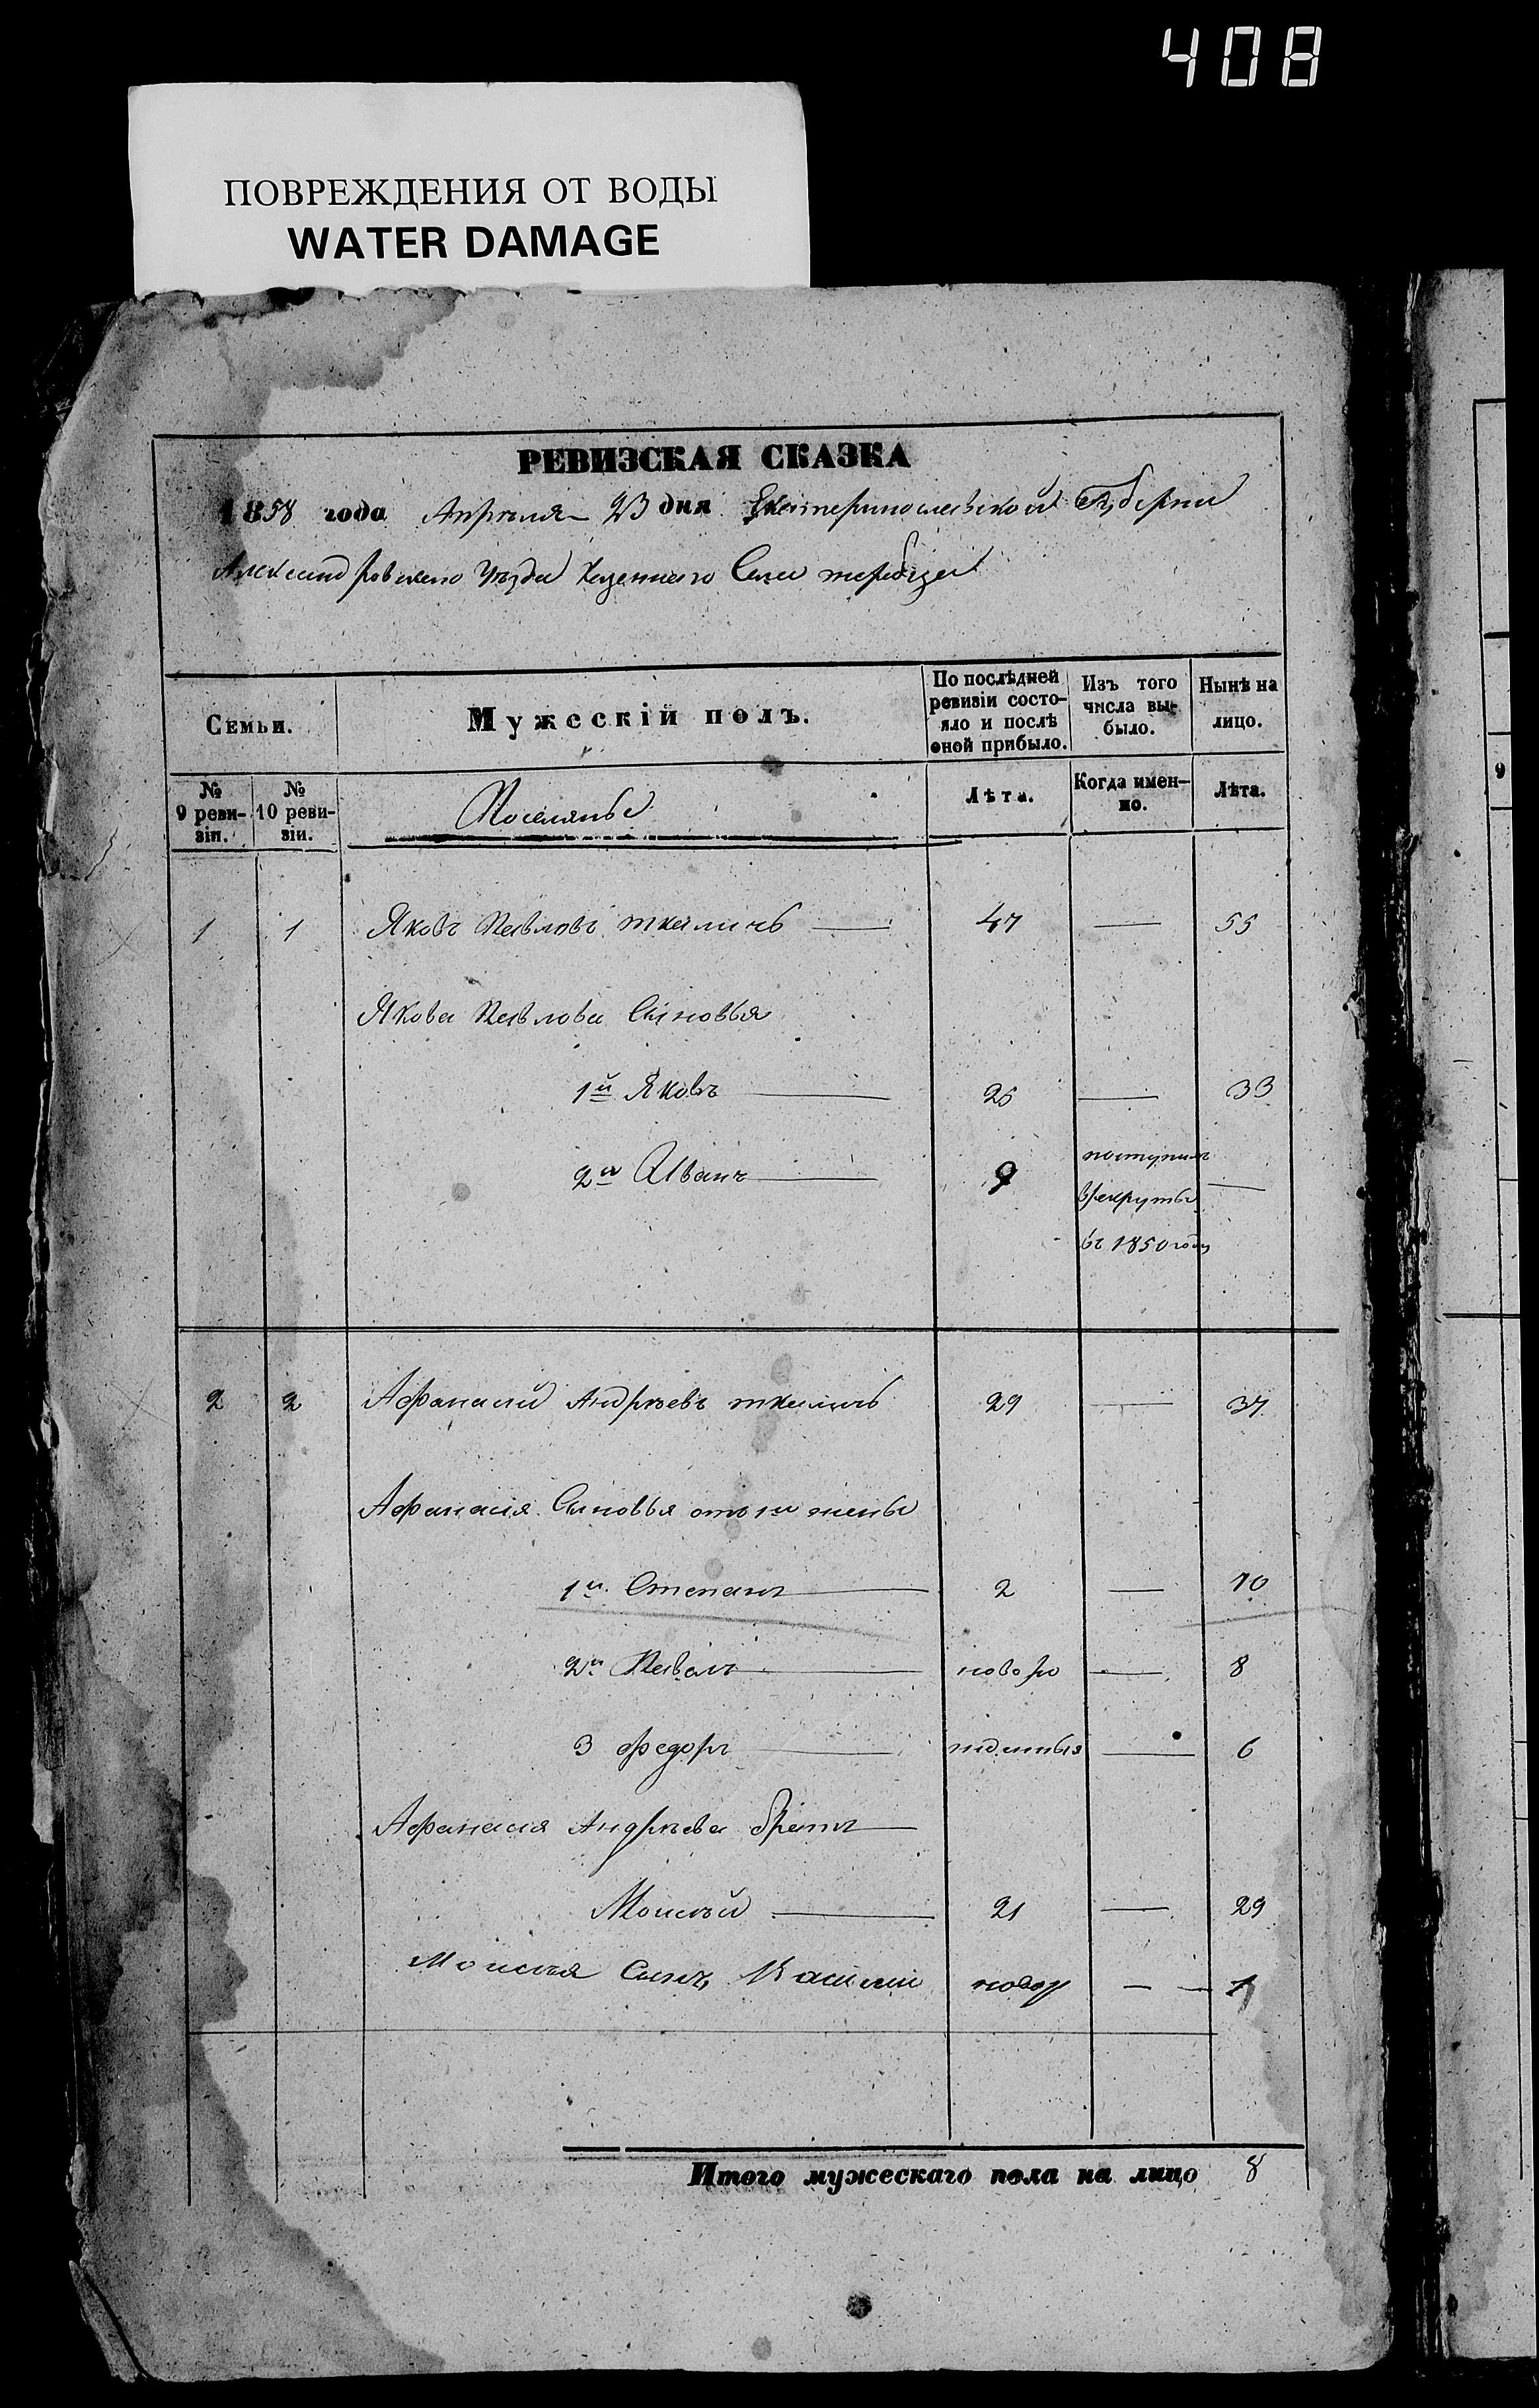 408
ПОВРЕЖДЕНИЯ ОТ ВОДЫ
WATER DAMAGE
РЕВИЗСКАЯ СКАЗКА
1858 года Апреля 23 дня Екатеринославской Губернии
Александровского Уезда Казенного Села
Семьи. Мужескій полъ. По послѣдней ревизіи состо- яло и послѣ оной прибыло. Изъ того числа вы- было. Нынѣ на лицо.
№ 9 реви- зіи. № 10 реви- зіи. Поселяне Лѣта. Когда имен- но. Лѣта.
1 1 Яковъ Павловъ ткаличь 47 — 55
Якова Павлова Сыновья
1й Яковъ 25 — 33
2й Иванъ 9 поступилъ —
в рекруты
въ 1850 году
2 2 Афанасий Андреевъ ткаличь 29 — 37
Афанасия Сыновья от 1й жены
1й Степанъ 2 — 10
2й Павелъ новоро — 8
3 Федоръ жденныя — 6
Афанасия Андреева братъ
Моисей 21 — 29
Моисея Сынъ Василий новор — 1
Итого мужескаго пола на лицо 8
9